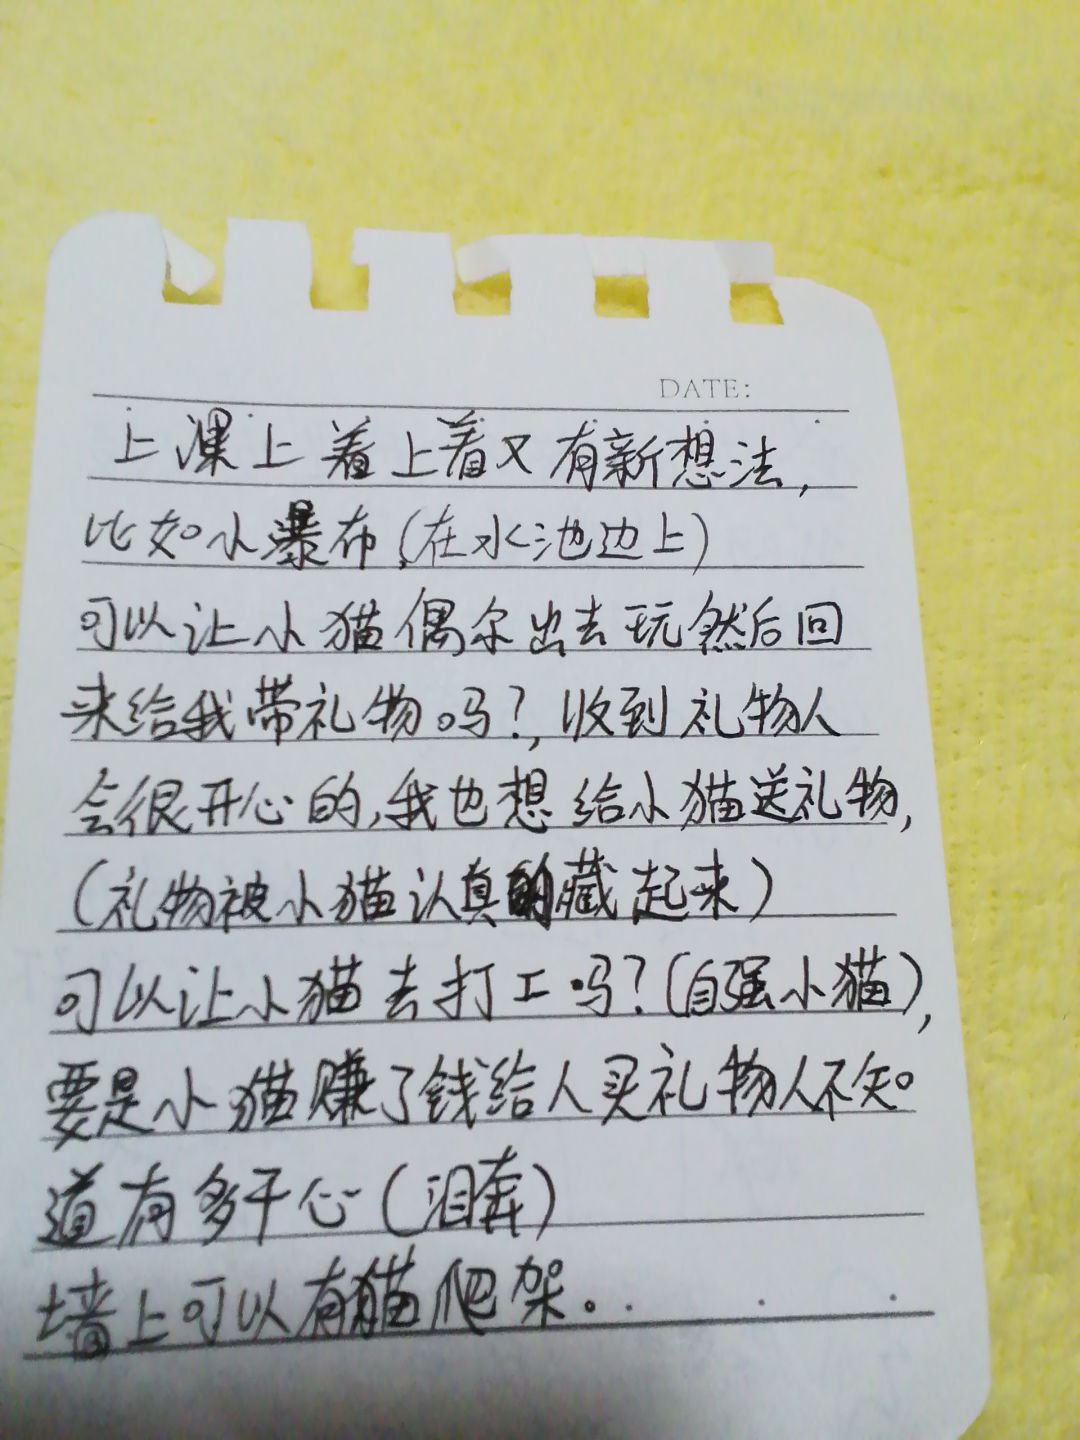 DATE:
上课上着上着又有新想法，
比如小瀑布(在水池边上)
可以让小猫偶尔出去玩然后回
来给我带礼物吗?，收到礼物人
会很开心的，我也想给小猫送礼物，
(礼物被小猫认真的藏起来)
可以让小猫去打工吗?(自强小猫)，
要是小猫赚了钱给人买礼物人不知
道有多干心(泪奔)
墙上可以有猫爬架。